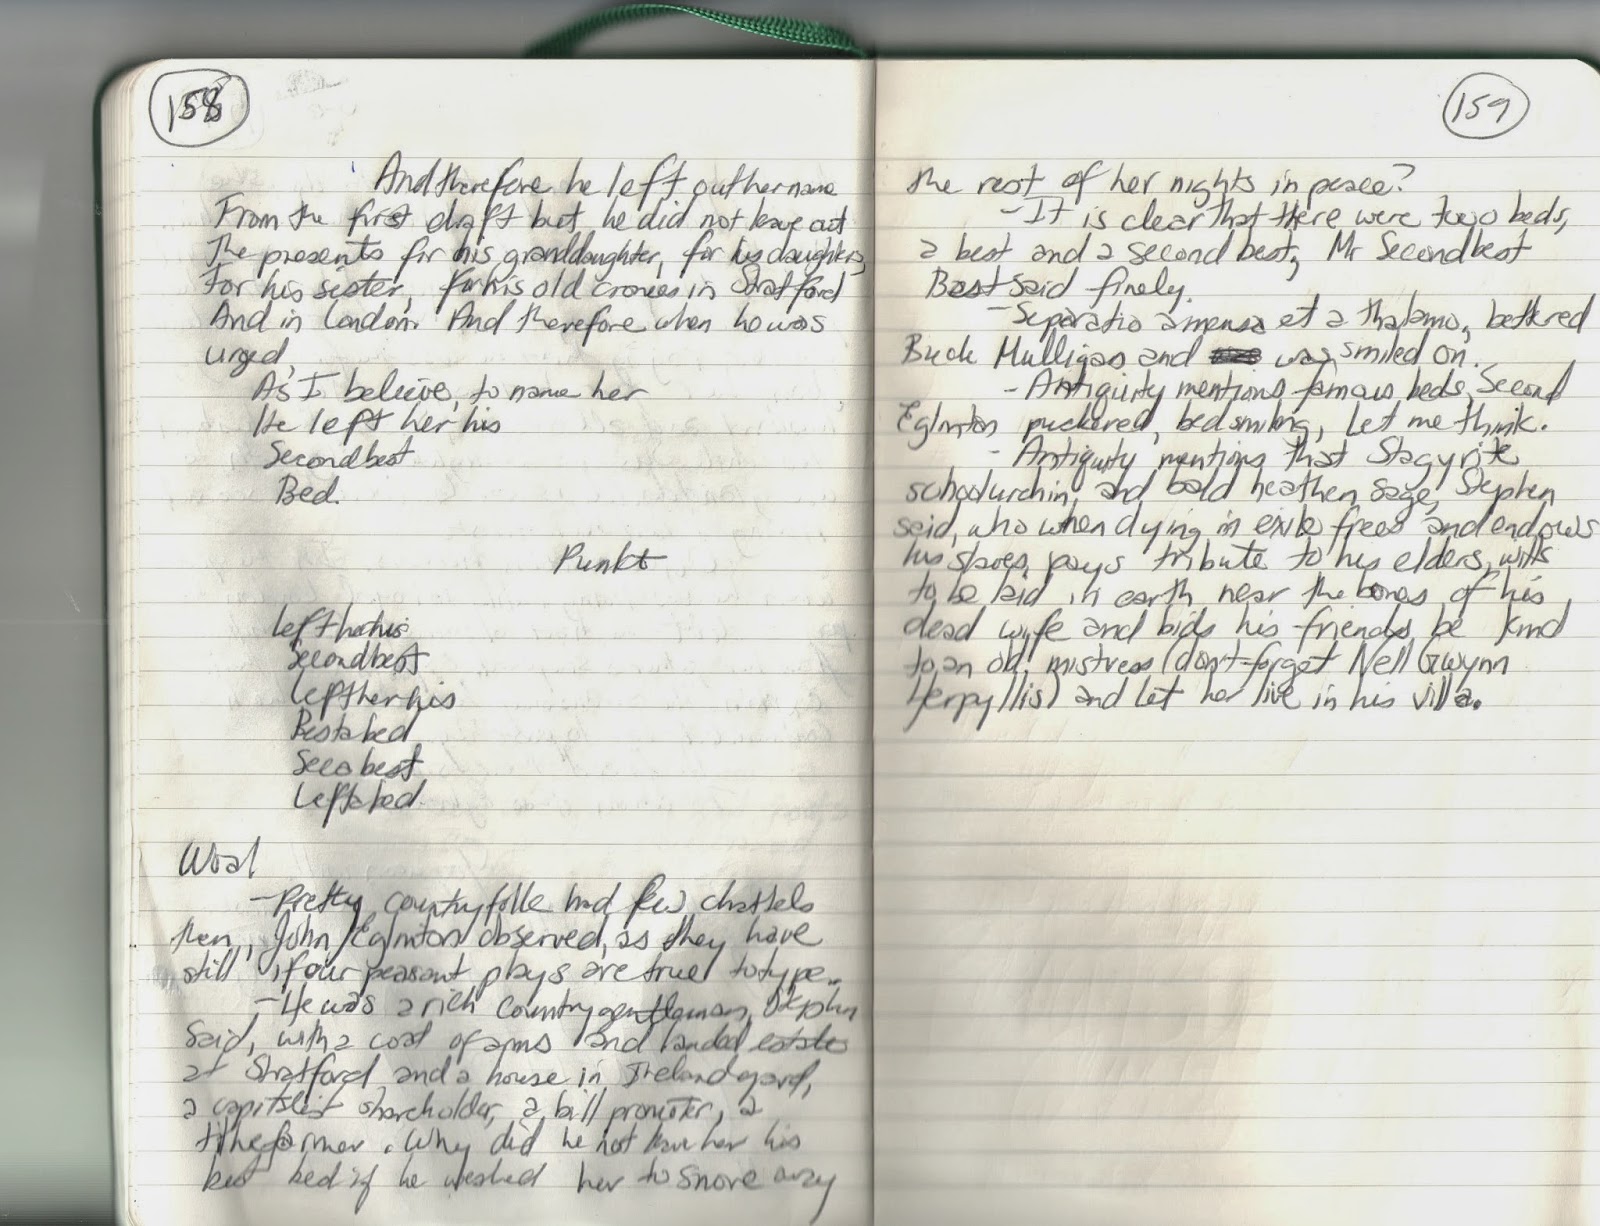 158
And therefore he left out her name
From the first draft but he did not leave out
The presents for his granddaughter, for his daughters,
For his sister, for his old cronies in Stratford
And in London. And therefore when he was
urged,
As I believe, to name her
He left her his
Secondbest
Bed.
Punkt
Leftherhis
Secondbest
Leftherhis
Bestabed
Secabest
Leftabed.
Woa!
-Pretty countryfolk had few chattels
then, John Eglinton observed, as they have
still if our peasant plays are true to type.
-He was a rich countrygentleman, Stephen
Said, with a coat of arms and landed estate
at Stratford and a house in Ireland yard,
a capitalist shareholder, a bill promoter, a
tithefarmer. Why did he not leave her his
best bed if he wished her to snore away
159
the rest of her nights in peace?
-It is clear that there were two beds,
a best and a secondbest, Mr Secondbest
Best said finely.
-Separatio a mensa et a thalamo, bettered
Buck Mulligan and was smiled on.
-Antiquity mentions famous beds, Second
Eglinton puckered, bedsmiling, Let me think.
-Antiquity mentions that Stagyrite
schoolurchin and bald heathen sage, Stephen
said, who when dying in exile frees and endows
his slaves, pays tribute to his elders, wills
to be laid in earth near the bones of his
dead wife and bids his friends be kind
to an old mistress (don't forget Nell Gwynn
Herpyllis) and let her live in his villa.